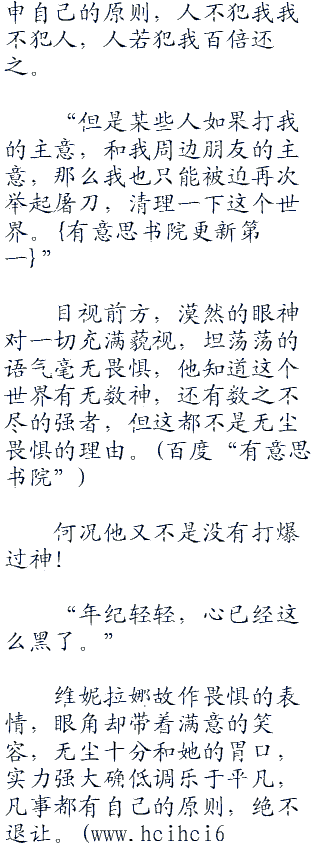 申自己的原则，人不犯我我
不犯人，人若犯我百倍还
之。
“但是某些人如果打我
的主意，和我周边朋友的主
意，那么我也只能被迫再次
举起屠刀，清理一下这个世
界。{有意思书院更新第
一}”
目视前方，漠然的眼神
对一切充满藐视，坦荡荡的
语气毫无畏惧，他知道这个
世界有无数神，还有数之不
尽的强者，但这都不是无尘
畏惧的理由。(百度“有意思
书院”)
何况他又不是没有打爆
过神！
“年纪轻轻，心已经这
么黑了。”
维妮拉娜故作畏惧的表
情，眼角却带着满意的笑
容，无尘十分和她的胃口，
实力强大确低调乐于平凡，
凡事都有自己的原则，绝不
退让。(www.hcihci6